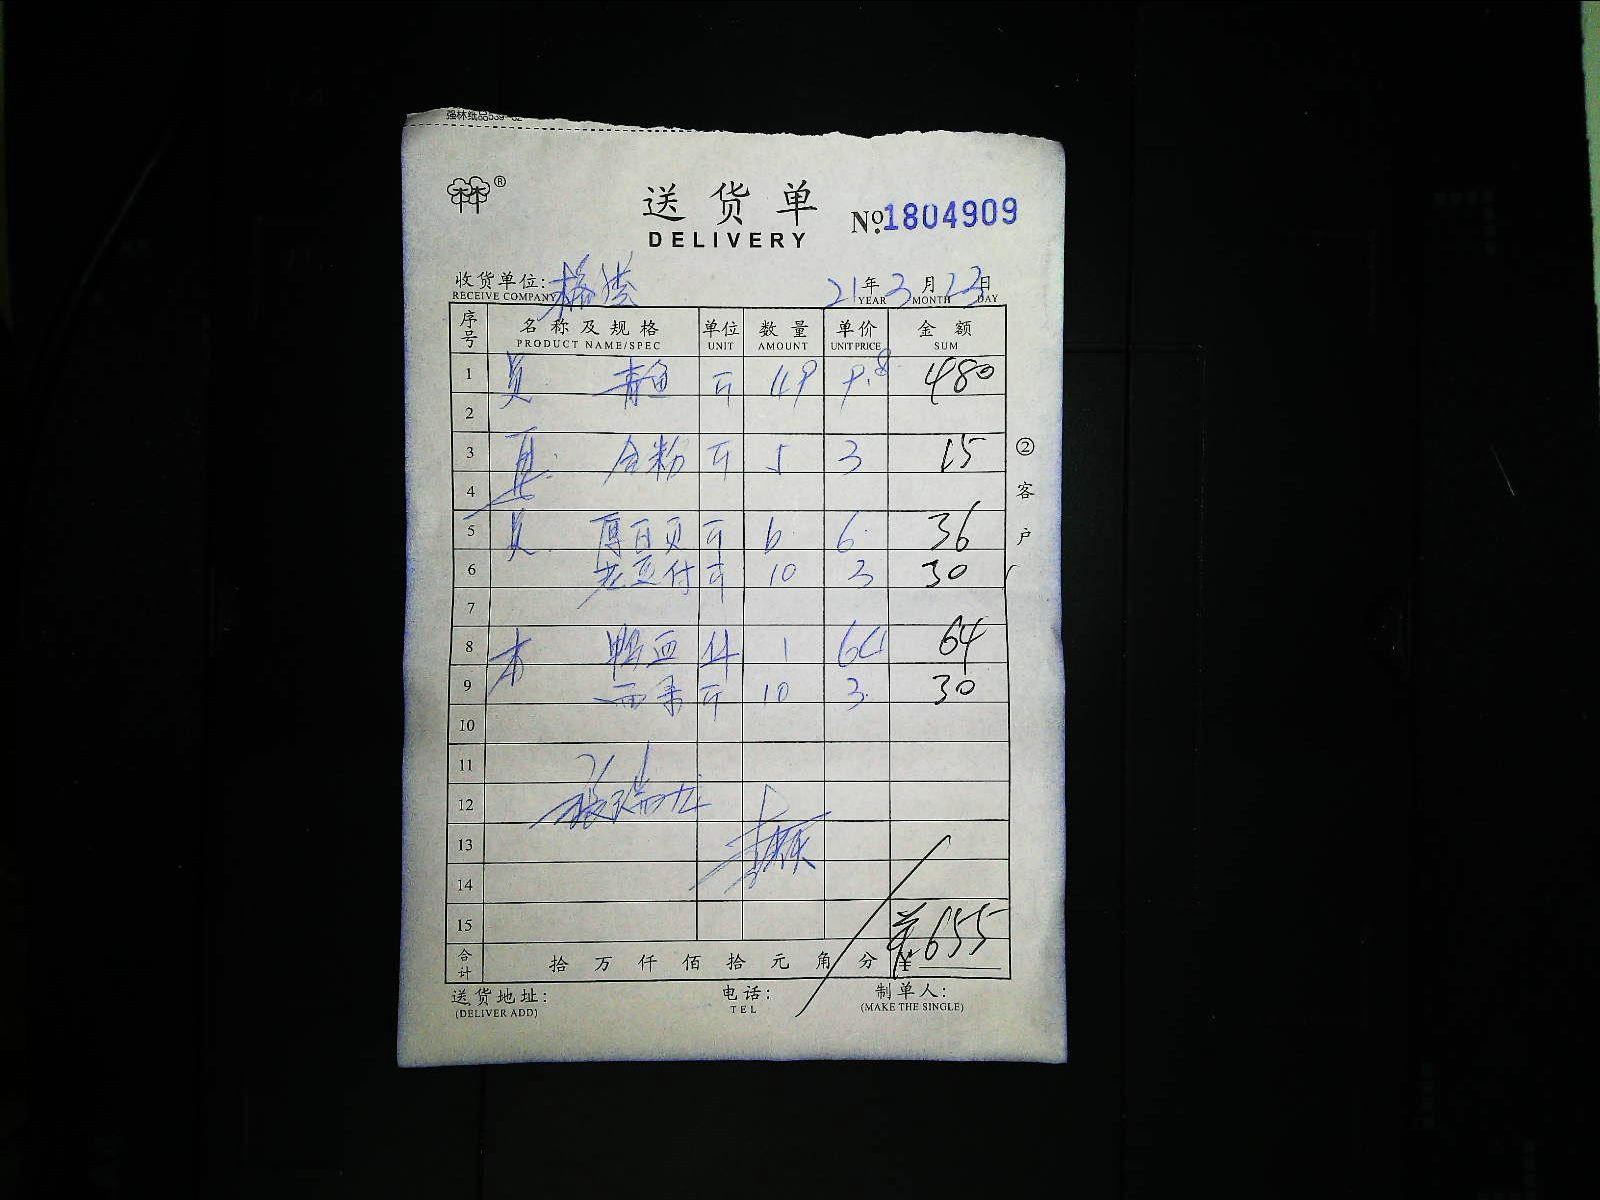 强林纸品539-62
林 ®
送货单
DELIVERY
№1804909
收货单位:
RECEIVE COMPANY
21年3月23日
YEAR MONTH DAY
序号 名称及规格 单位 数量 单价 金额
PRODUCT NAME/SPEC UNIT AMOUNT UNIT PRICE SUM
1 青鱼 斤 49 9.8 480
2
3 斤 5 3 15
4
5 厚百页 斤 6 6 36
6 老豆付 斤 10 3 30
7
8 鸭血 件 1 64 64
9 西芹 斤 10 3 30
10
11
12 张瑞龙
13
14
15 ¥655
合计 拾万仟佰拾元角分 ¥
②客户
送货地址: 电话: 制单人:
(DELIVER ADD) TEL (MAKE THE SINGLE)